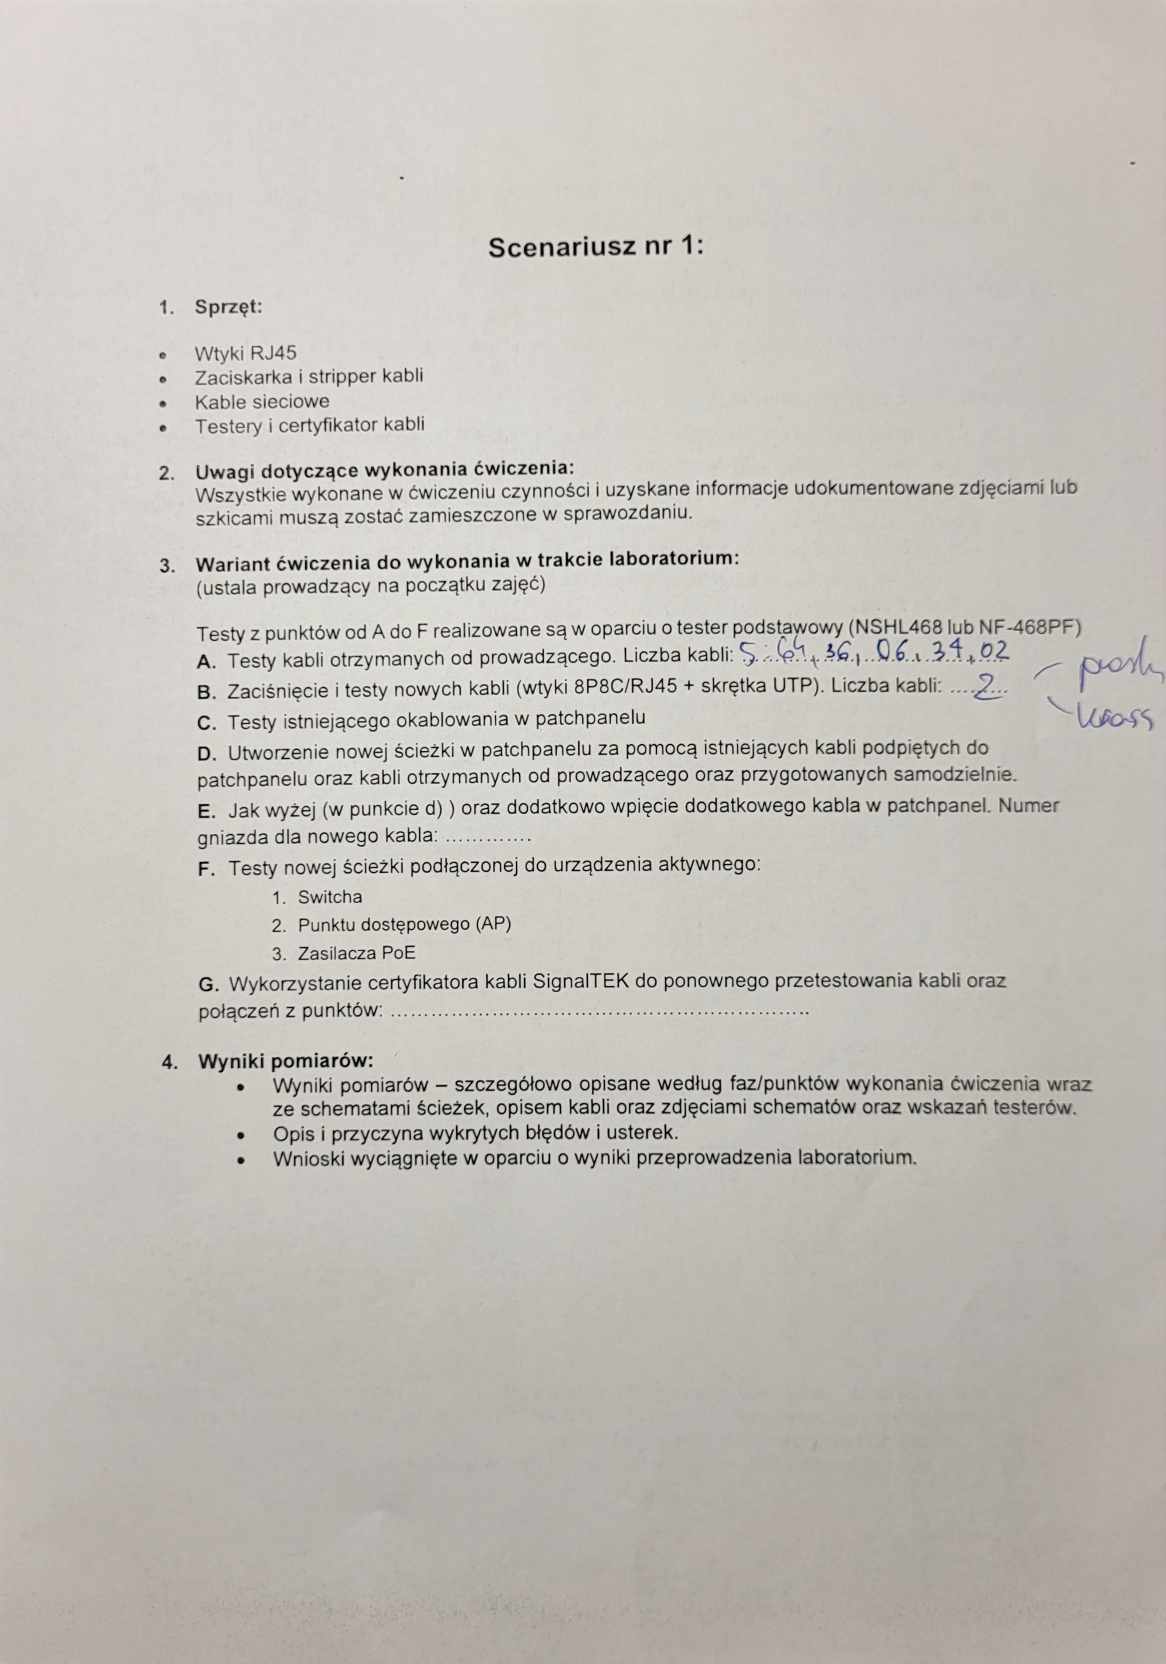 Scenariusz nr 1:
1. Sprzęt:
• Wtyki RJ45
• Zaciskarka i stripper kabli
• Kable sieciowe
• Testery i certyfikator kabli
2. Uwagi dotyczące wykonania ćwiczenia:
Wszystkie wykonane w ćwiczeniu czynności i uzyskane informacje udokumentowane zdjęciami lub
szkicami muszą zostać zamieszczone w sprawozdaniu.
3. Wariant ćwiczenia do wykonania w trakcie laboratorium:
(ustala prowadzący na początku zajęć)
Testy z punktów od A do F realizowane są w oparciu o tester podstawowy (NSHL468 lub NF-468PF)
A. Testy kabli otrzymanych od prowadzącego. Liczba kabli: 5: 64, 36, 06, 34, 02
B. Zaciśnięcie i testy nowych kabli (wtyki 8P8C/RJ45 + skrętka UTP). Liczba kabli: ....2...
prosty
kross
C. Testy istniejącego okablowania w patchpanelu
D. Utworzenie nowej ścieżki w patchpanelu za pomocą istniejących kabli podpiętych do
patchpanelu oraz kabli otrzymanych od prowadzącego oraz przygotowanych samodzielnie.
E. Jak wyżej (w punkcie d) ) oraz dodatkowo wpięcie dodatkowego kabla w patchpanel. Numer
gniazda dla nowego kabla: .............
F. Testy nowej ścieżki podłączonej do urządzenia aktywnego:
1. Switcha
2. Punktu dostępowego (AP)
3. Zasilacza PoE
G. Wykorzystanie certyfikatora kabli SignalTEK do ponownego przetestowania kabli oraz
połączeń z punktów: ..............................................................
4. Wyniki pomiarów:
• Wyniki pomiarów – szczegółowo opisane według faz/punktów wykonania ćwiczenia wraz
ze schematami ścieżek, opisem kabli oraz zdjęciami schematów oraz wskazań testerów.
• Opis i przyczyna wykrytych błędów i usterek.
• Wnioski wyciągnięte w oparciu o wyniki przeprowadzenia laboratorium.